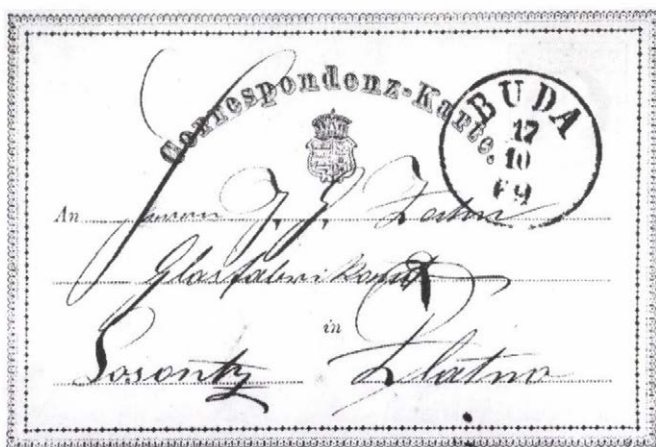 Correspondenz-Karte.
BUDA
17
10
69
An Herrn J. G. Zahn
Glasfabrikant
in
Losontz Zlatno